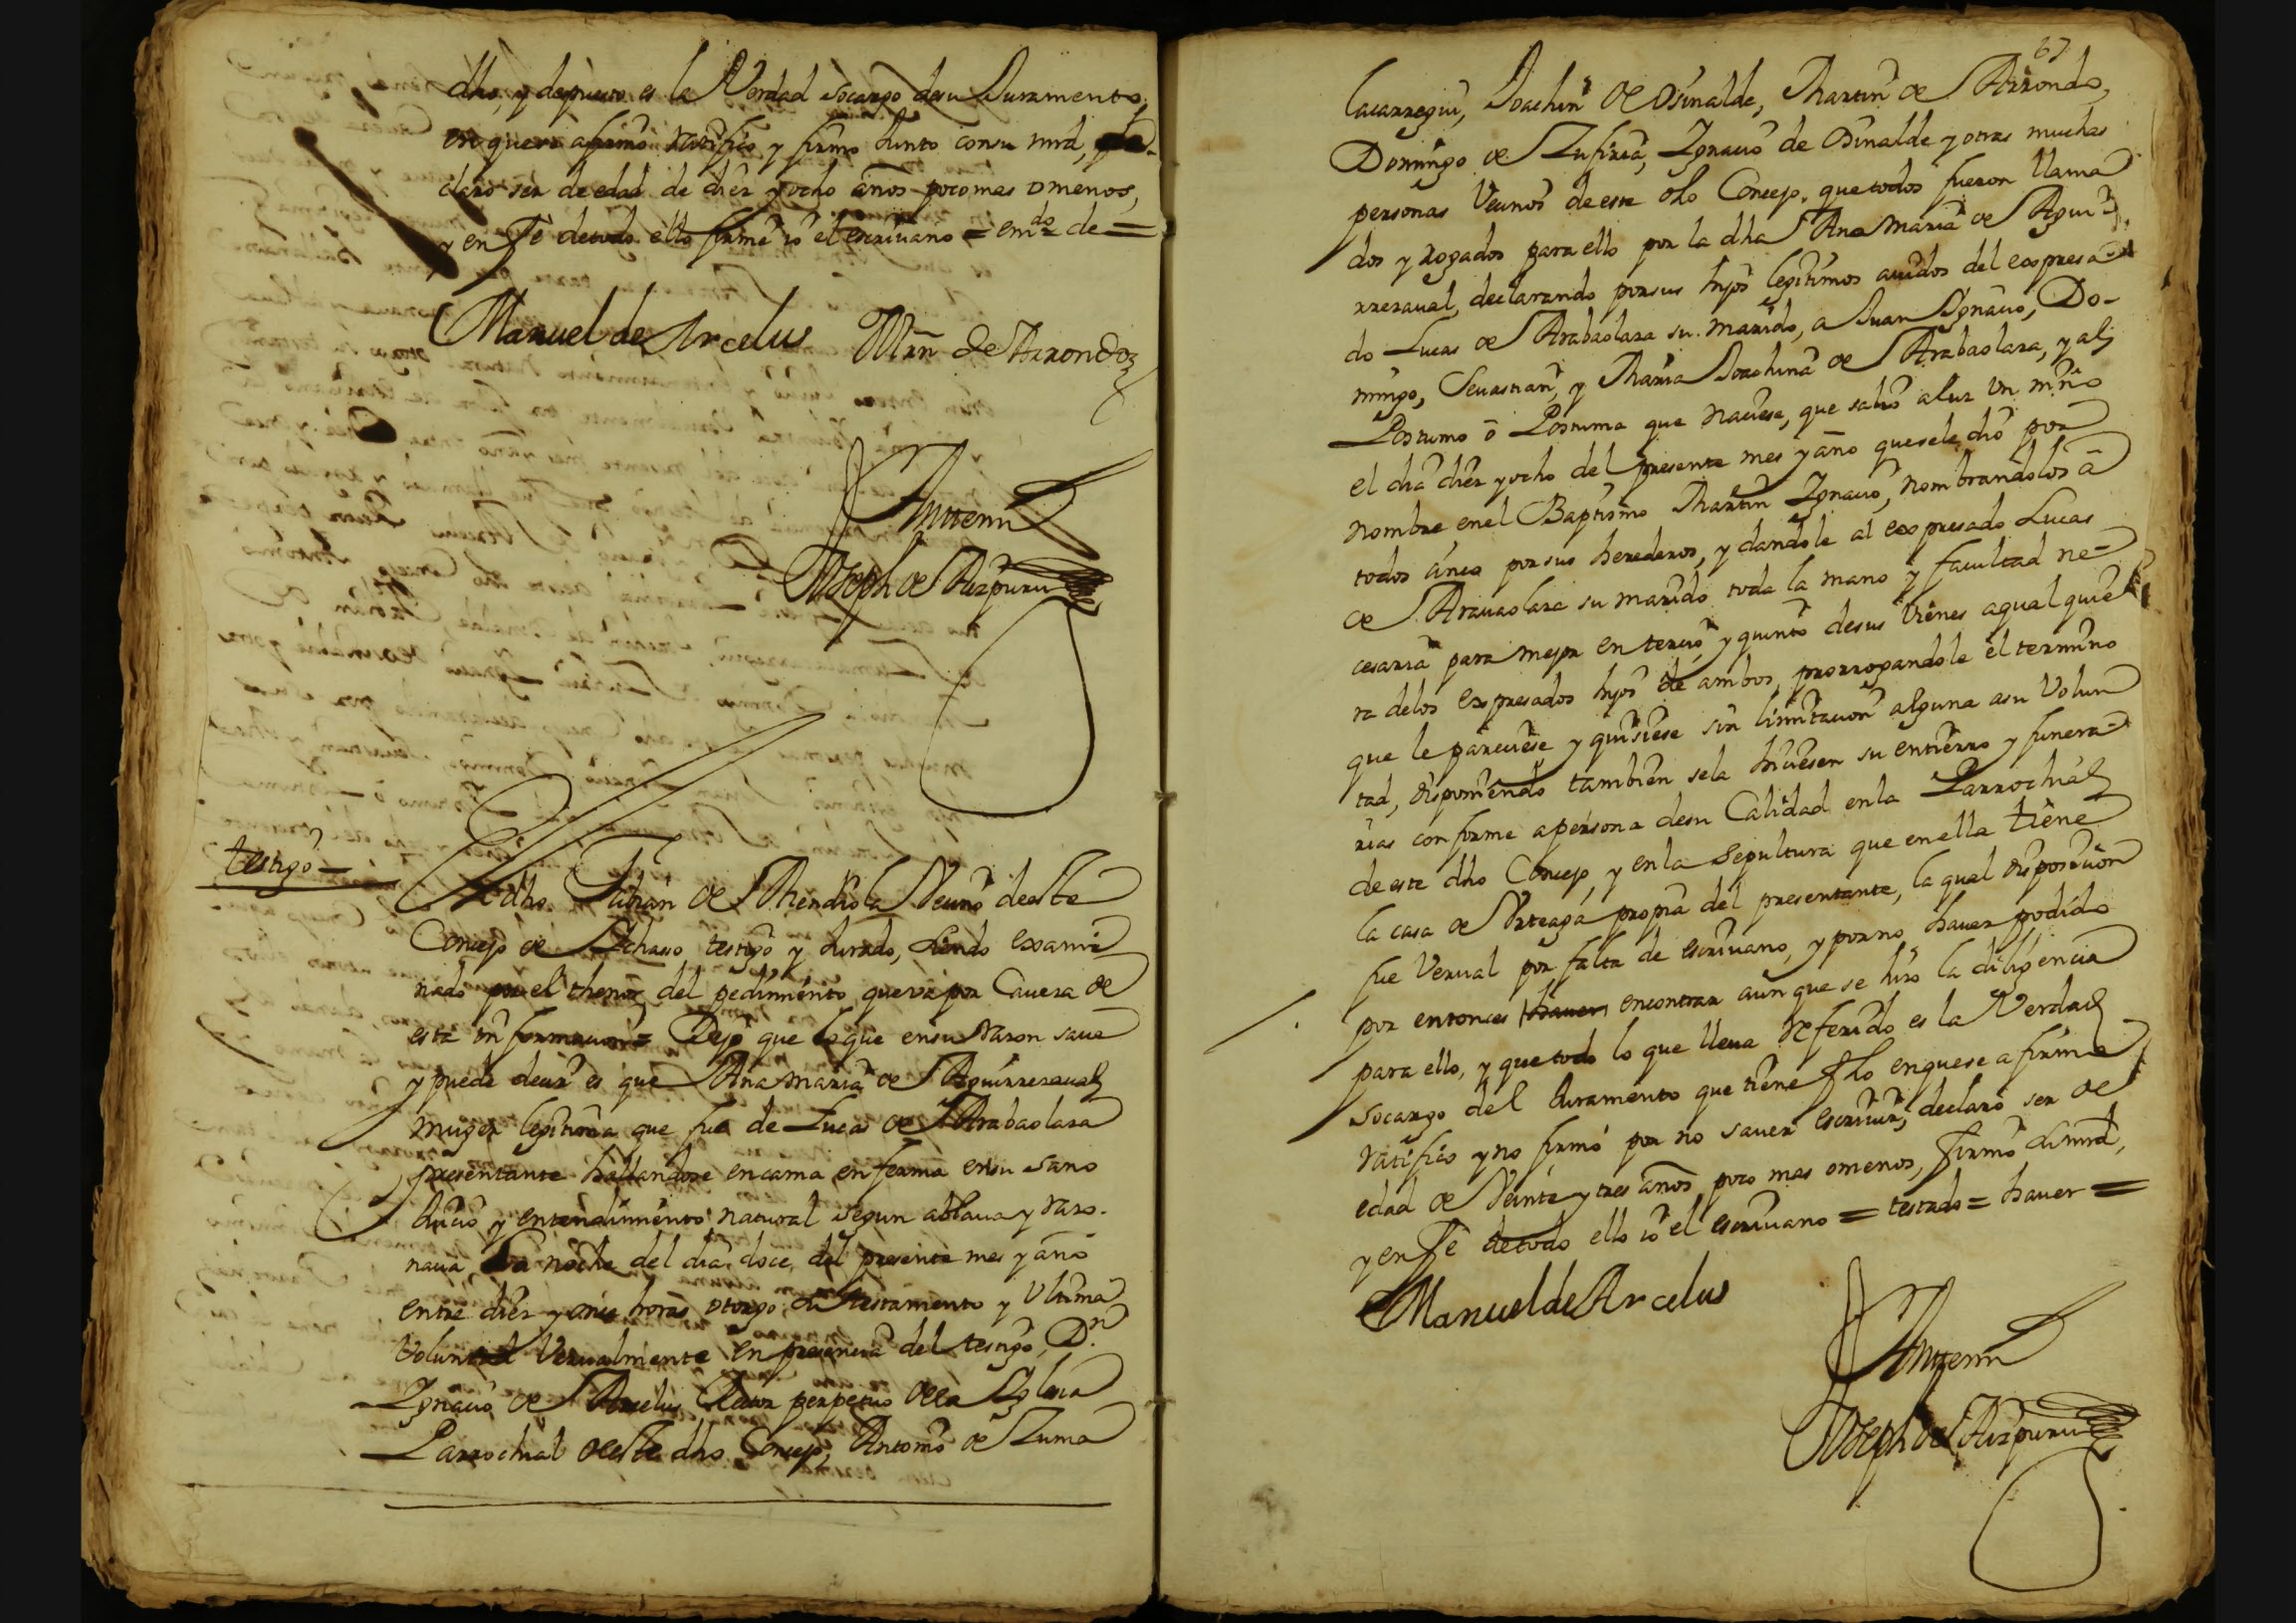 dho, y depuesto es la Verdad Socargo desu Juramento,
en que se afirmó ratificó y firmó Junto consu mrd, de-
claró ser de edad de diez y ocho años poco mas omenos,
y en fé detodo ello firmé io el escriuano = em.do de =
Manuel de Arcelus Mrn de Arrondoz
Anttemi
Joseph de Aizpuru
testigo =
El dho Fabian de Mendiola Vecino deeste
Concejo de Ichasso testigo y Jurado, siendo exami
nado por el thenor del pedimiento queva por Cauera de
esta informacion = Dejo que loque ensu Razon saue
y puede decir es que Ana maria de Aguirrezaual
muger legitima que fue de Lucas de Arabaolaza
presentante hallandose encama enferma ensu sano
Juicio y entendimiento natural segun ablaua y razo-
naua la noche del dia doce del presente mes y año
entre diez y onze horas otorgo su testamento y Vltima
Voluntad Verualmente en presencia del testigo, Dn
Ignacio de Arcelus Rector perpetuo dela Iglesia
Parrochial deeste dho Concejo, Antonio de Zuma
67
lacarregui, Joachin de Osinalde, Martin de Arrondo,
Domingo de Zufiria, Ignacio de Osinalde y otras muchas
personas Vecinos deeste dho Concejo, quetodos fueron llama
dos y rogados para ello por la dha Ana Maria de Agui
rrezaual, declarando porsus hijos legitimos auidos del expresa
do Lucas de Arabaolaza su marido, a Juan Ignacio, Do-
mingo, Seuastian, y Maria Joachina de Arabaolaza, y al
Postumo ó Postuma que naciese, que salió aluz Un niño
el dia diez y ocho del presente mes y año quesele dió por
nombre enel Baptismo Martin Ignacio, nombrandolos á
todos cinco porsus herederos, y dandole al expresado Lucas
de Arauaolaza su marido toda la mano y facultad ne-
cesaria para mejorar en tercio y quinto desus Vienes aqualquie
ra delos expresados hijos de ambos, prorrogandole el termino
que le pareciese y quisiese sin limitacion alguna asu Volun
tad, disponiendo tambien sela hiciesen su entierro y funera
rias conforme apersona desu Calidad enla Parrochial
de este dho Concejo, y enla sepultura que enella tiene
la casa de Vrteaga propia del presentante, la qual disposicion
fue Verual por falta de escriuano, y porno hauer podido
por entonces hauer encontrar aunque se hizo la diligencia
para ello, y quetodo lo que lleua Referido es la Verdad
Socargo del Juramento que tiene fho enquese afirmó
ratificó y no firmó por no sauer escriuir, declaró ser de
edad de Veinte y tres años poco mas omenos, firmó su mrd,
y en fé detodo ello io el escriuano = testado = hauer =
Manuel de Arcelus
Anttemi
Joseph de Aizpuru